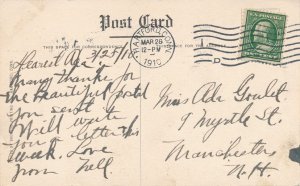 Post Card
THIS SPACE FOR CORRESPONDENCE
HARTFORD, CONN.
MAR 26
12-PM
1910
Dearest Ada 3/25/10
Many thanks for
the beautiful postal
you sent &
Will write
you a letter this
week. Love
from Nell
Miss Ada Goulet
9 Myrtle St.
Manchester
N.H.